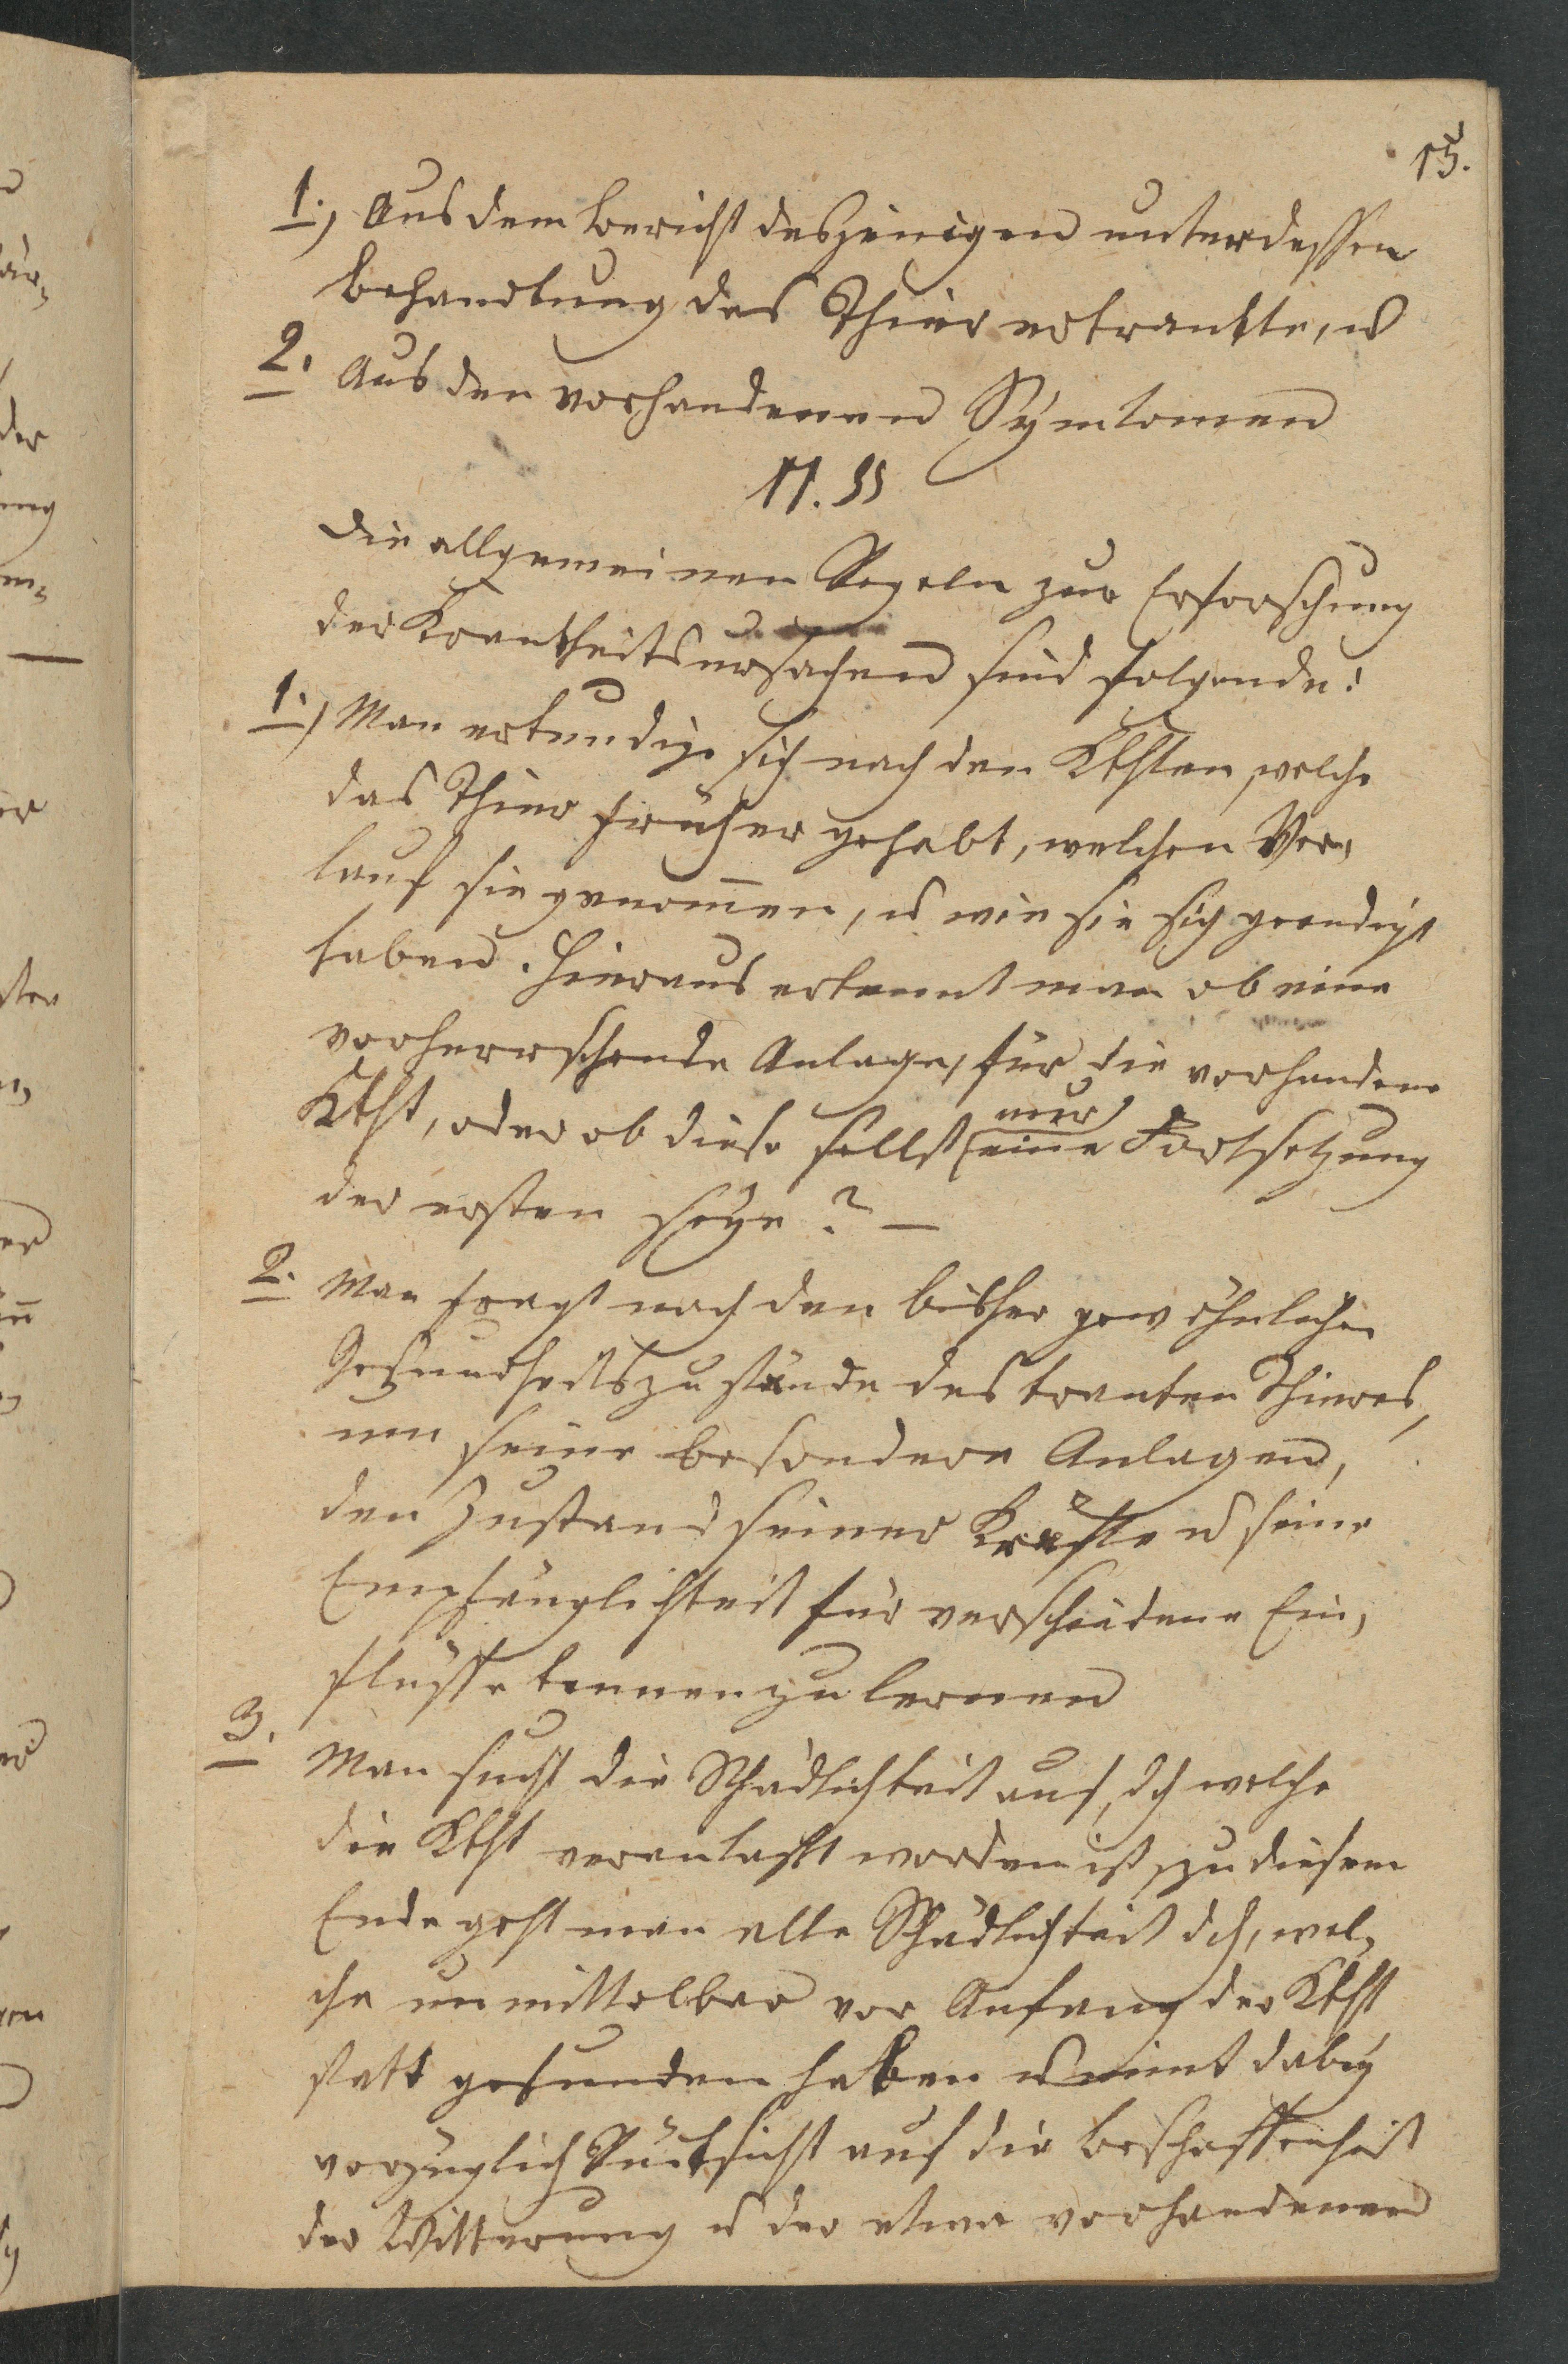 15.
1.) Aus dem Bericht desjenigen unter dessen
Behandlung das Thier erkrankte, u
2. Aus den vorhandenen Symtomen
17. §§
Die allgemeinen Regeln zur Erforschung
der Krankheitsursachen sind folgende:
1.) Man erkundige sich nach den Kkhten, welche
das Thier früher gehabt, welchen Ver,
lauf sie genom̄en, u wie sie sich geendigt
haben. Hieraus erkennt man ob eine
vorherrschende Anlage, für die vorhandene
Kkht, oder ob diese selbst nur eine Fortsetzung
der ersten seye? —
2. Man fragt nach den bisher gewöhnlichen
Gesundheitszustände des kranken Thieres,
um seine besondere Anlagen,
den Zustand seiner Kräfte u seine
Empfänglichkeit für verschiedene Ein,
flüsse kennen zu lernen
3. Man sucht die Schädlichkeit auf, dch welche
die Kkht veranlaßt worden ist, zu diesem
Ende geht man alle Schädlichkeit dch, wel,
che unmittelbar vor Anfang der Kkht
statt gefunden haben u nimt dabey
vorzüglich Rücksicht auf die Beschaffenheit
der Witterung u der etwa vorhandenen